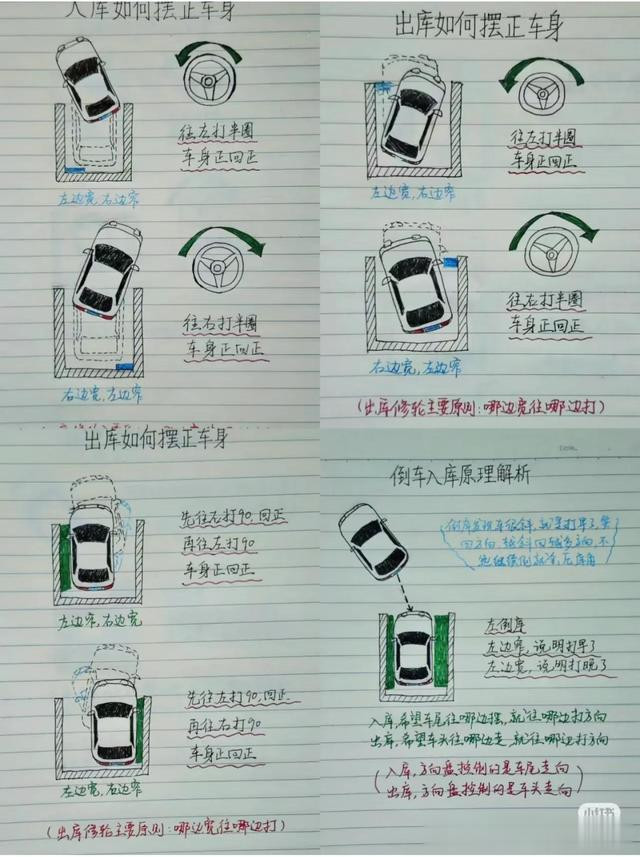 入库如何摆正车身
往左打半圈
车身正回正
左边宽,右边窄
往右打半圈
车身正回正
右边宽,左边窄
出库如何摆正车身
往左打半圈
车身正回正
左边宽,右边窄
往右打半圈
车身正回正
右边宽,左边窄
(出库修轮主要原则:哪边宽往哪边打)
出库如何摆正车身
先往右打90,回正
再往左打90
车身正回正
左边窄,右边宽
先往左打90,回正
再往右打90
车身正回正
左边宽,右边窄
(出库修轮主要原则:哪边宽往哪边打)
倒车入库原理解析
倒库发现车很斜,就是打早了,要
回方向,
左倒库
左边窄,说明打早了
左边宽,说明打晚了
入库,希望车尾往哪边摆,就往哪边打方向
出库,希望车头往哪边走,就往哪边打方向
(入库,方向盘控制的是车尾走向
出库,方向盘控制的是车头走向)
小红书